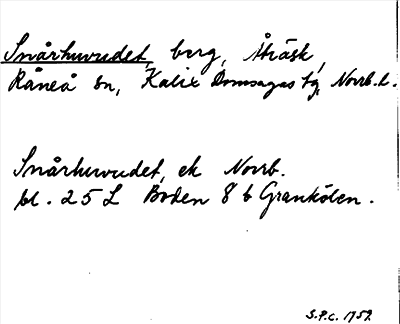 Snårhuvudet, berg, Åträsk,
Råneå sn, Kalix Domsagas tg, Norrb. l.
Snårhuvudet, ek Norrb.
bl. 25 L Boden 8 b Grankölen.
S.P.C. 1959.